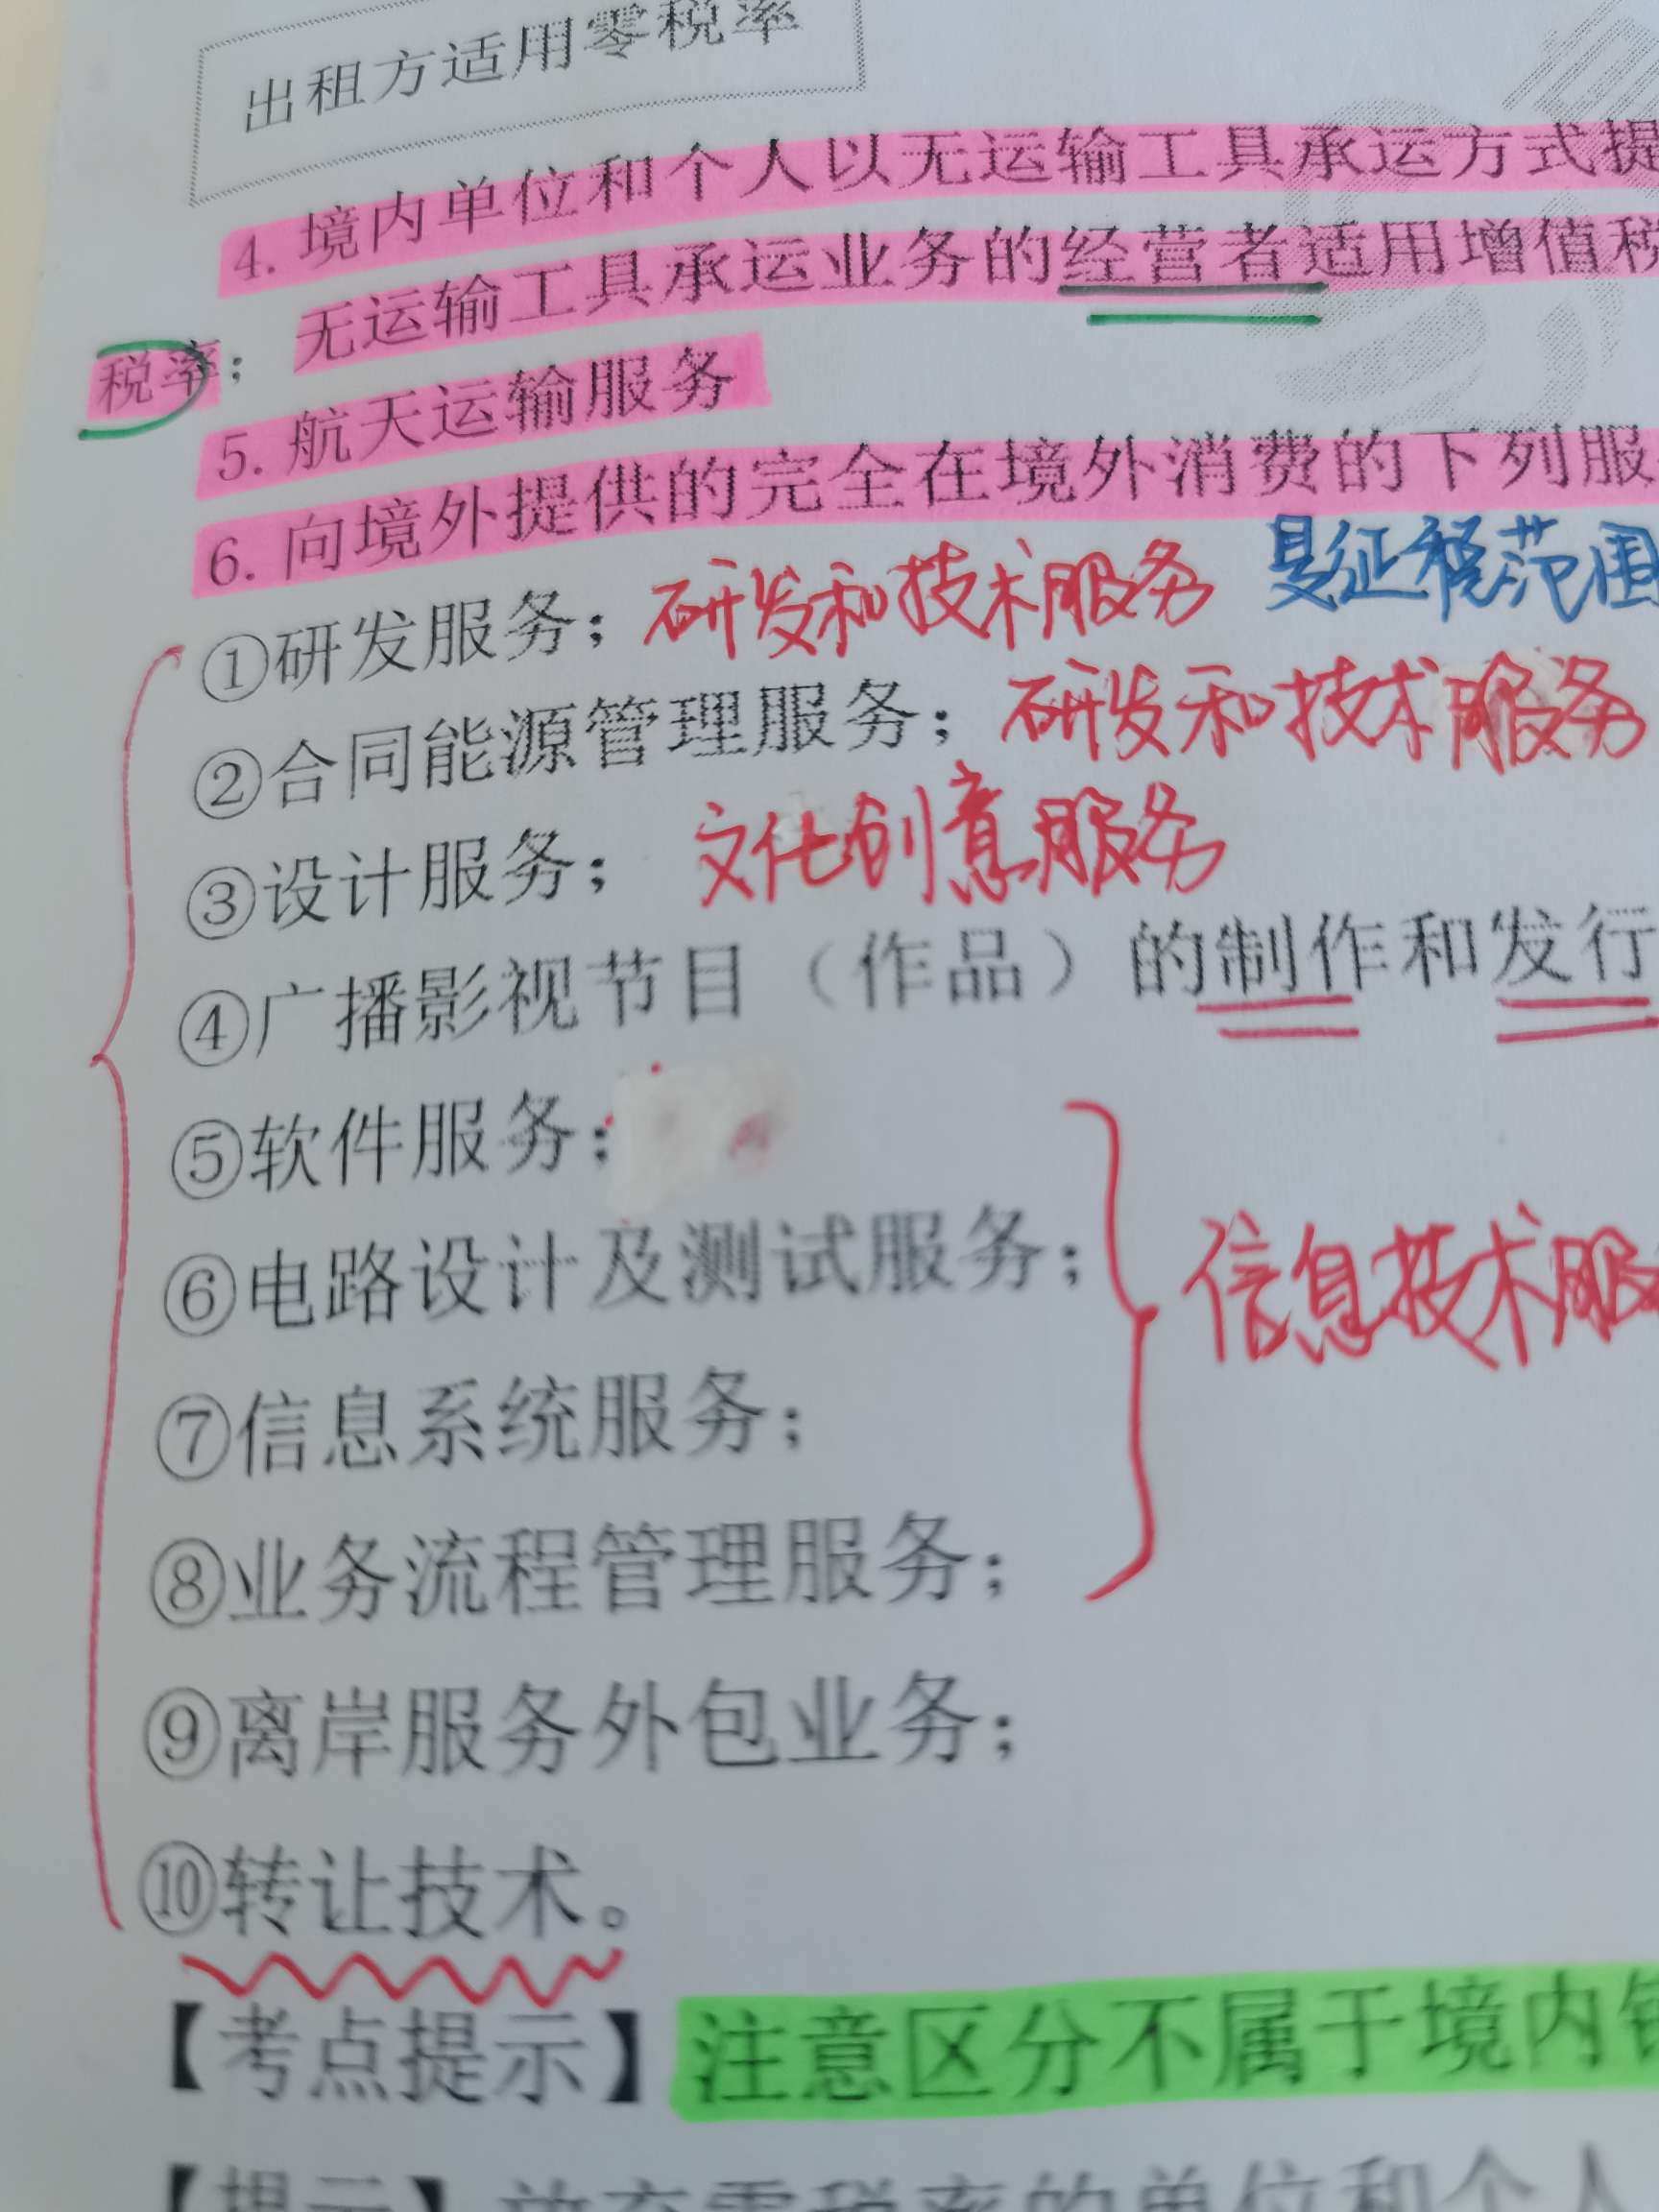 出租方适用零税率
4. 境内单位和个人以无运输工具承运方式提
无运输工具承运业务的经营者适用增值税
税率；
5. 航天运输服务
6. 向境外提供的完全在境外消费的下列服
①研发服务；研发和技术服务 是征税范围
②合同能源管理服务；研发和技术服务
③设计服务；文化创意服务
④广播影视节目（作品）的制作和发行
⑤软件服务；
⑥电路设计及测试服务；
信息技术服
⑦信息系统服务；
⑧业务流程管理服务；
⑨离岸服务外包业务；
⑩转让技术。
【考点提示】注意区分不属于境内
【提示】放弃零税率的单位和个人